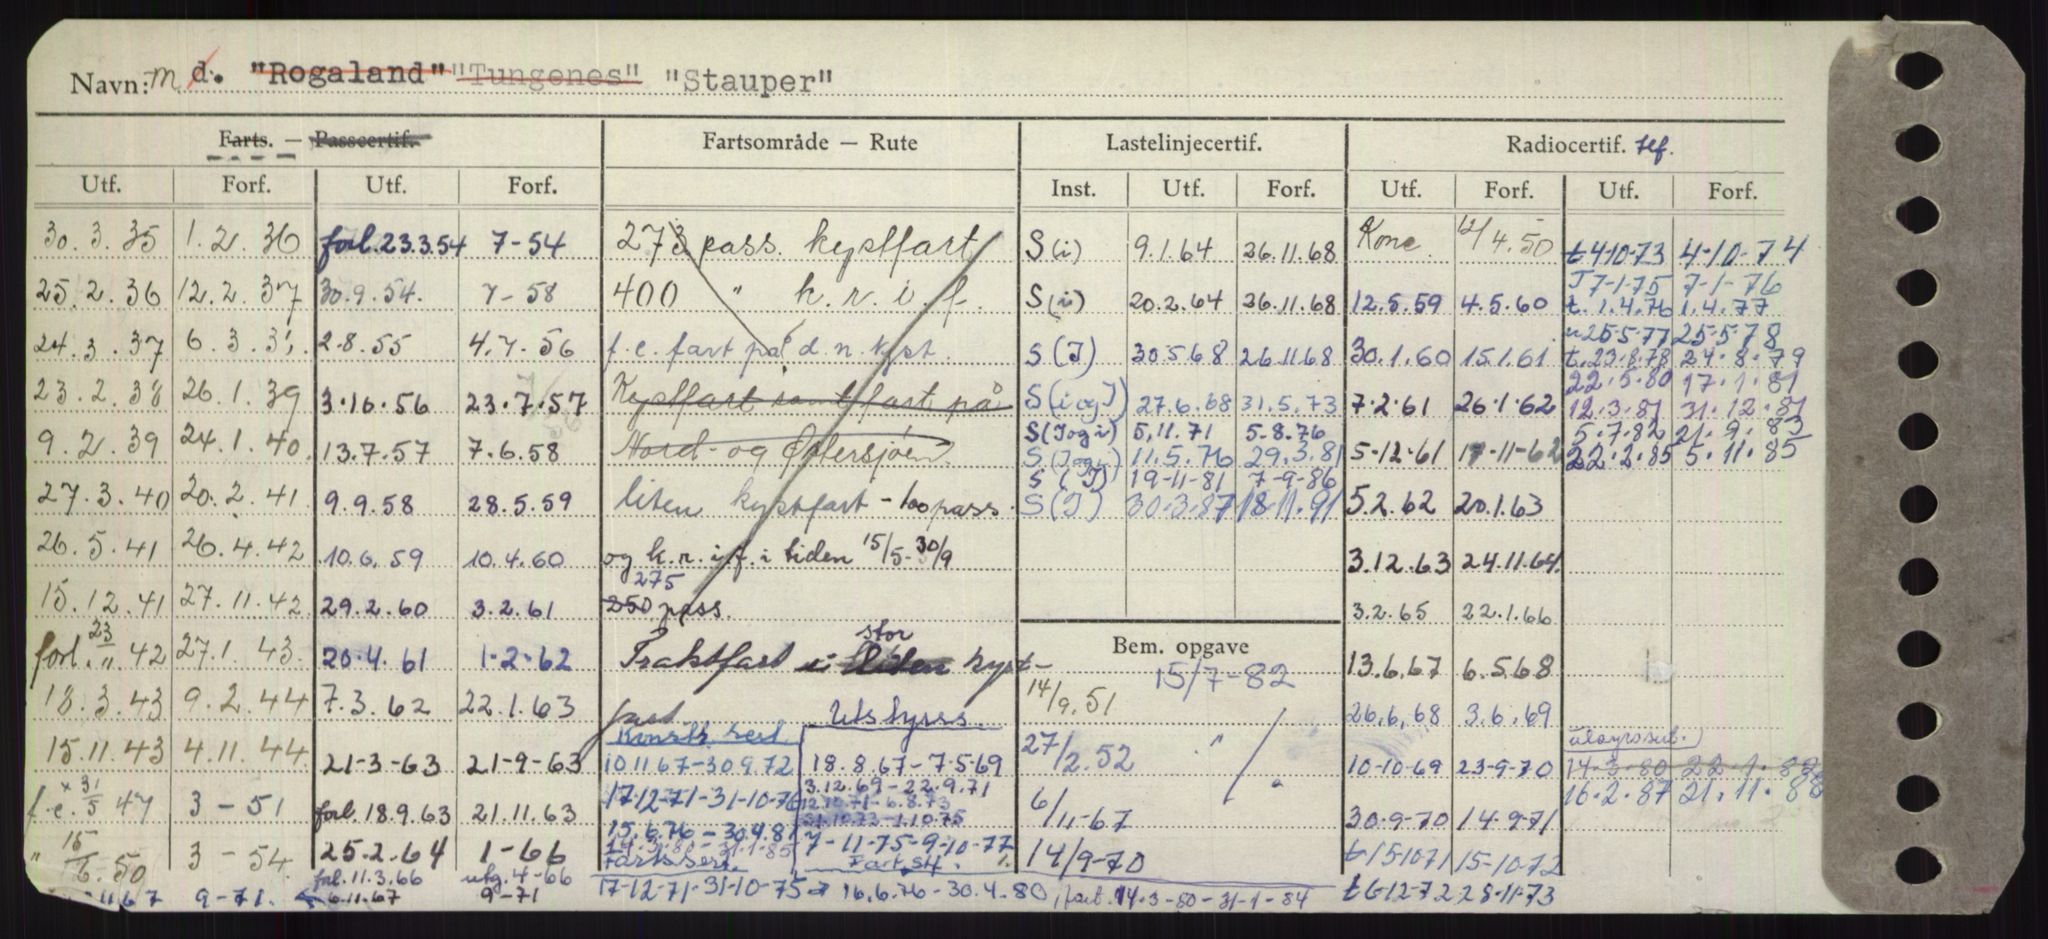 Navn: m d. "Rogaland" "Tungenes" "Stauper"
Farts. — Passcertif. Fartsområde — Rute Lastelinjecertif. Radiocertif. tlf.
Utf. Forf. Utf. Forf. Inst. Utf. Forf. Utf. Forf. Utf. Forf.
30.3.35 1.2.36 forl.23.3.54 7-54 273 pass. kystfart S(i) 9.1.64 26.11.68 Konc. 12/4.50 t 4-10-73 4-10-74
T 7-1-75 7-1-76
25.2.36 12.2.37 30.9.54. 7-58 400 " k.r.i.f. S(i) 20.2.64 26.11.68 12.5.59 4.5.60 t. 1.4.76 1.4.77
25-5-77 25-5-78
24.3.37 6.3.3 2.8.55 4.7.56 f.e. fart på d.n. kyst. S(I) 30.5.68 26.11.68 30.1.60 15.1.61 t. 23.8.78 24.8.79
22.5.80 17.1.81
23.2.38 26.1.39 3.10.56 23.7.57 Kystfart samt fart på S(i og I) 27.6.68 31.5.73 7.2.61 26.1.62 12.3.81 31.12.81
S(I og i) 5.11.71 5.8.76 5.7.82 21.9.83
9.2.39 24.1.40. 13.7.57 7.6.58 Nord- og Østersjøen. S(I og i) 11.5.76 29.3.81 5-12-61 17-11-62 22.2.85 5.11.85
S(I) 19-11-81 7-9-86
27.3.40 20.2.41. 9.9.58 28.5.59 liten kystfart - 100 pass. S(I) 30.3.87 18.11.91 5.2.62 20.1.63
26.5.41 26.4.42 10.6.59 10.4.60 og k.r.i.f. i tiden 15/5-30/9 3.12.63 24.11.64.
275
15.12.41 27.11.42. 29.2.60 3.2.61 250 pass. 3.2.65 22.1.66
forl. 23/11 42 27.1.43. 20.4.61 1-2-62 Fraktfart i liten stor kyst- Bem. opgave 13.6.67 6.5.68
15/7-82
18.3.43 9.2.44 7.3.62 22.1.63 fart. Utstyrss. 14/9.51 26.6.68 3.6.69
Konstr. sert. utstyrssert.
15.11.43 4.11.44. 21-3-63 21-9-63 10.11.67-30.9.72 18.8.67-7.5.69 27/2.52 " 10-10-69 23-9-70 14-3-80 22-1-82
3.12.69-22.9.71
f.e. x 31/5 47 3-51 forl.18.9.63 21.11.63 17-12-71-31-10-76 12.10.71-6.8.73 6/11-67 30-9-70 14-9-71 16.2.87 21.11.88
31.10.73-1.10.75
15.6.76-30.4.81
" 15/6.50 3-54. 25.2.64 1-66 14.3.80-31.1.85 7-11-75-9-10-77 14/9-70 t 15-10-71 15-10-72
forl.11.3.66 utg. 4-66 Fartssert. Fart.stf.
11 67 9-71. 6.11.67 9-71 17-12-71-31-10-75 → 16.6.76-30.4.80, fart. 14-3-80-31-1-84 t 6-12-72 28-11-73